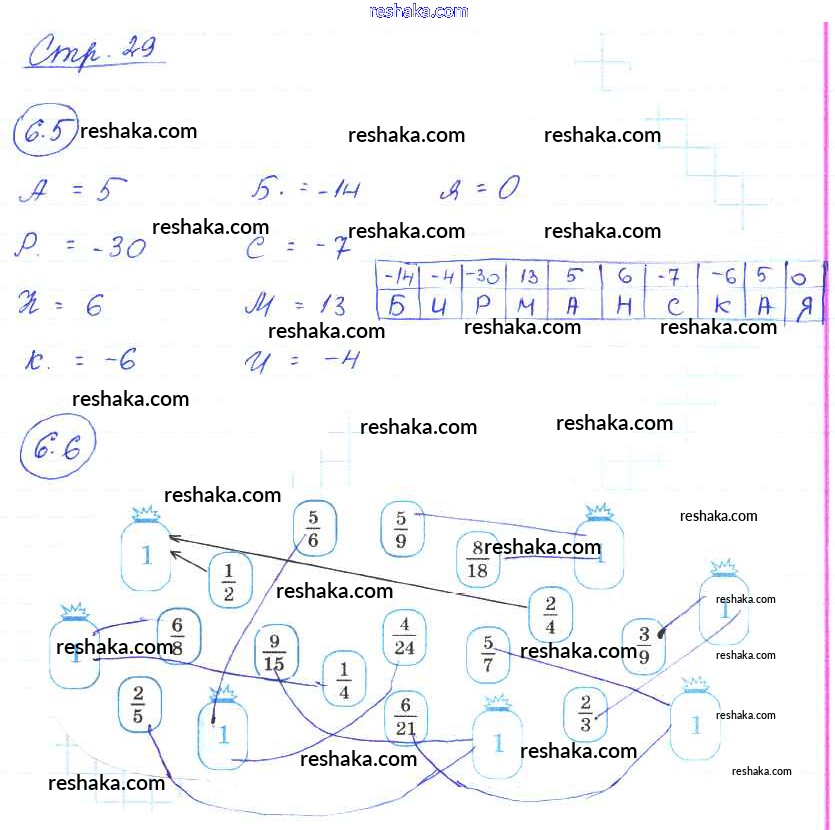 reshaka.com
Стр. 29
6.5 reshaka.com reshaka.com reshaka.com
А = 5 Б. = -14 Я = 0
reshaka.com reshaka.com
Р. = -30 С = -7
-14 -4 -30 13 5 6 -7 -6 5 0
Б И Р М А Н С К А Я
Н = 6 М = 13
reshaka.com reshaka.com reshaka.com
К. = -6 И = -4
reshaka.com
reshaka.com reshaka.com
6.6
reshaka.com reshaka.com
5/6 5/9
1 8/18 reshaka.com 1
1/2 reshaka.com 2/4 reshaka.com 1
6/8 9/15 4/24 5/7 3/9
reshaka.com 1 reshaka.com reshaka.com
1/4
2/5 1 6/21 1 2/3 1
reshaka.com
reshaka.com reshaka.com
reshaka.com reshaka.com